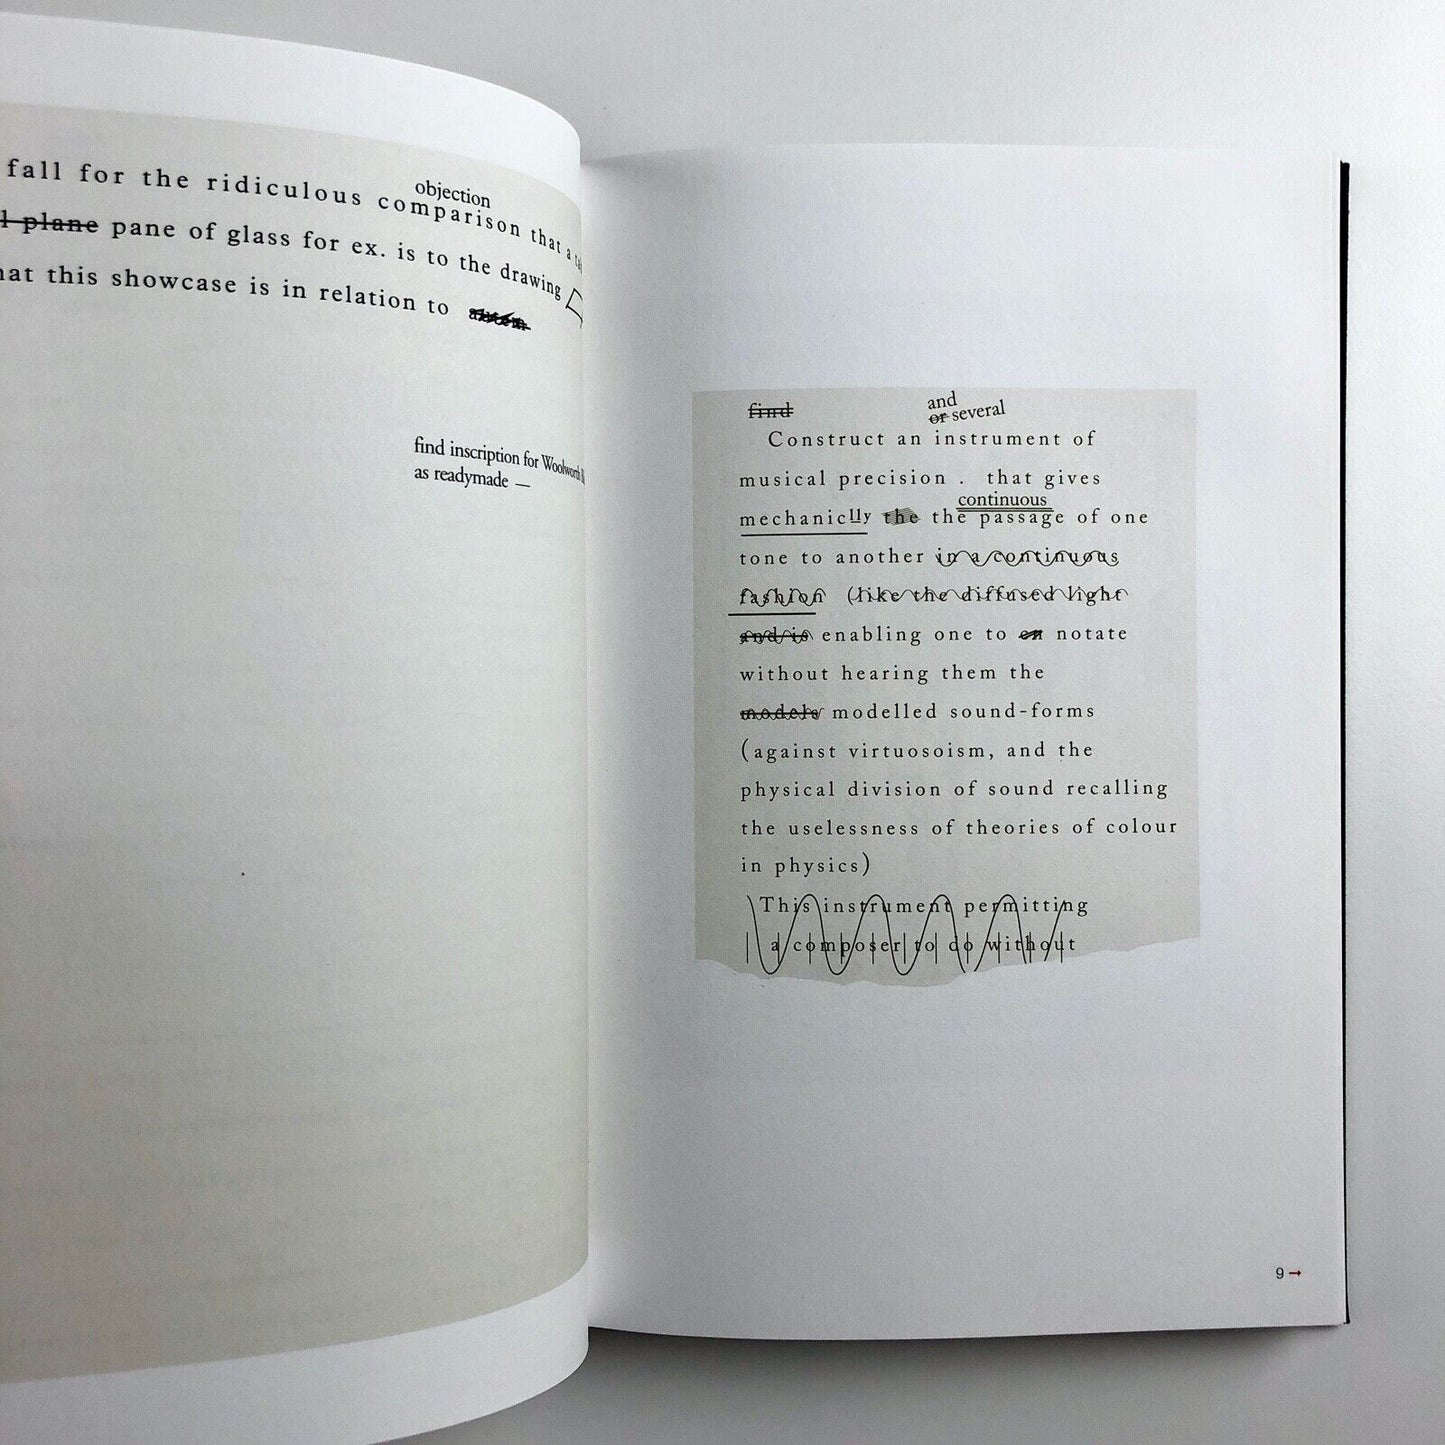 fall for the ridiculous comparison that a
objection
plane pane of glass for ex. is to the drawing
this showcase is in relation to
find inscription for Woolworth
as readymade —
find
and
or several
Construct an instrument of
musical precision . that gives
continuous
mechaniclly the the passage of one
tone to another in a continuous
fashion (like the diffused light
and is enabling one to en notate
without hearing them the
models modelled sound-forms
(against virtuosoism, and the
physical division of sound recalling
the uselessness of theories of colour
in physics)
This instrument permitting
a composer to do without
9→